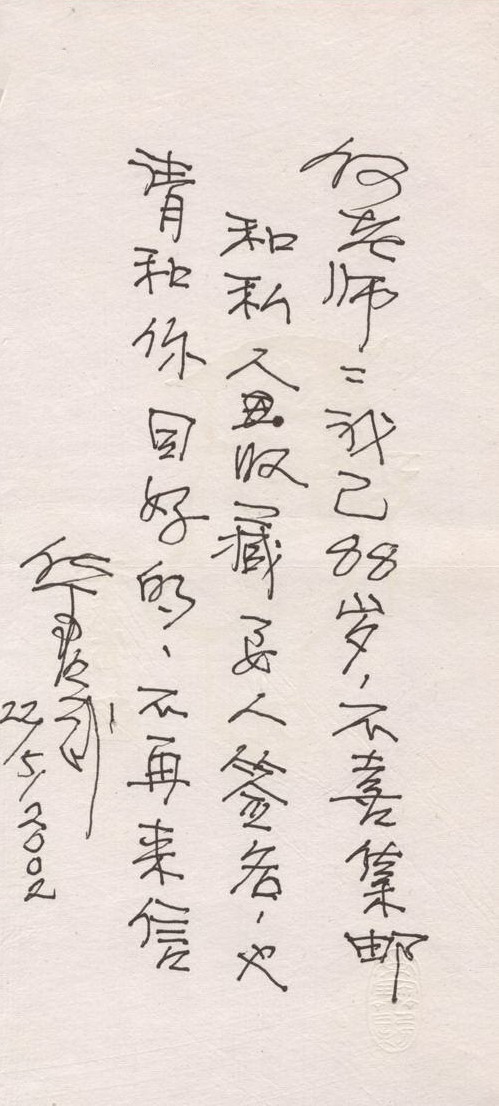 何老师：我已88岁，不喜集邮
和私人收藏要人签名，也
请和你同好的，不再来信
22/5/2002